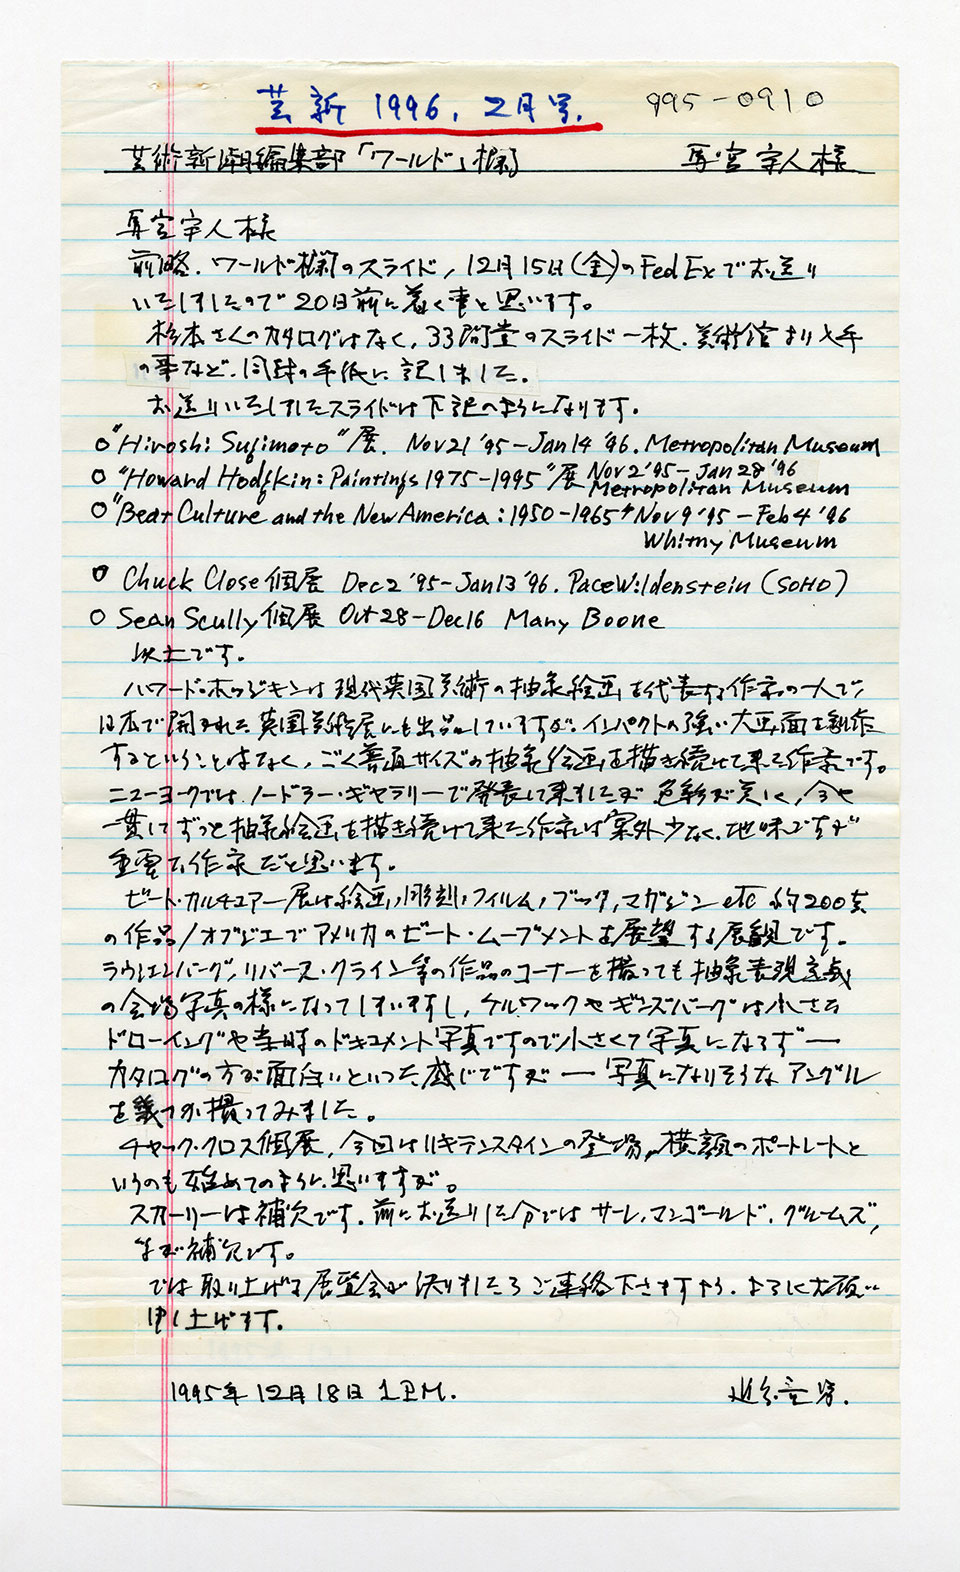 芸新 1996. 2月号.
995-0910
芸術新潮編集部「ワールド」欄
宇人様
宇人様
前略. ワールド欄のスライド, 12月15日(金)のFedExでお送り
いたしましたので20日前に着く事と思います。
杉本さんのカタログはなく, 33間堂のスライド一枚. 美術館より入手
の事など. 同封の手紙に記しました.
お送りいたしましたスライドは下記のようになります.
○"Hiroshi Sugimoto"展. Nov21'95-Jan14'96. Metropolitan Museum
○"Howard Hodgkin: Paintings 1975-1995"展 Nov2'95-Jan28'96
Metropolitan Museum
○"Beat Culture and the New America: 1950-1965" Nov9'95-Feb4'96
Whitny Museum
○ Chuck Close個展 Dec2'95-Jan13'96. PaceWildenstein (SOHO)
○ Sean Scully個展 Oct28-Dec16 Mary Boone
以上です.
ハワード・ホッジキンは現代英国美術の抽象絵画を代表する作家の一人で,
日本で開かれた英国美術展にも出品していますが, インパクトの強い大画面を制作
するということはなく, ごく普通サイズの抽象絵画を描き続けて来た作家です。
ニューヨークでは, ノードラー・ギャラリーで発表して来ましたが 色彩が美しく, 今や
一貫してずっと抽象絵画を描き続けて来た作家は案外少なく, 地味ですが
重要な作家だと思います.
ビート・カルチュアー展は絵画, 彫刻, フィルム, ブック, マガジン etc 約200点
の作品/オブジェでアメリカのビート・ムーブメントを展望する展観です.
ラウシェンバーグ, リバース・クライン等の作品のコーナーを撮っても抽象表現主義
の会場写真の様になってしまいますし, ケルワックやギンズバーグは小さな
ドローイングや当時のドキュメント写真ですので小さくて写真にならず—
カタログの方が面白いといった感じですが — 写真になりそうなアングル
を幾つか撮ってみました。
チャック・クロス個展, 今回はリキテンスタインの登場, 横顔のポートレートと
いうのも始めてのように思いますが。
スカーリーは補欠です. 前にお送りした分ではサーレ, マンゴールド, グルームズ,
が補欠です。
では取り上げる展覧会が決りましたらご連絡下さいますよう. よろしくお願い
申し上げます.
1995年12月18日 1P.M.